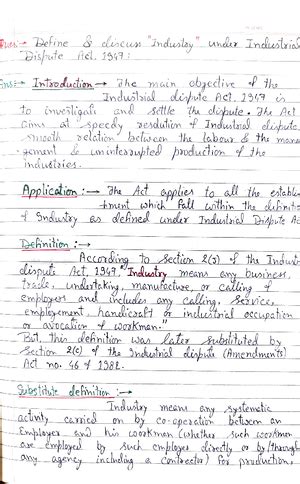 Ques:- Define & discuss "Industry" under Industrial
Dispute Act, 1947:
Ans:- Introduction :- The main objective of the
Industrial dispute Act, 1947 is
to investigate and settle the dispute. The Act
aims at speedy resolution of Industrial dispute,
smooth relation between the labour & the mana
-gement & uninterrupted production of the
industries.
Application :- The Act applies to all the establi
-shment which fall within the definitio
of Industry as defined under Industrial Dispute Ac
Definition :-
According to Section 2(J) of the Indust
dispute Act, 1947. "Industry means any business,
trade, undertaking, manufacture, or calling of
employers and includes any calling, service,
employement, handicraft or industrial occupation
or avocation of workman."
But, this definition was later substituted by
Section 2(c) of the Industrial dispute (Amendments)
Act no. 46 of 1982.
Substitute definition :-
Industry means any systematic
activity carried on by co-operation between an
Employer and his workman (whether such workman
are employed by such employer directly or by/through
any agency including a contractor) for production,